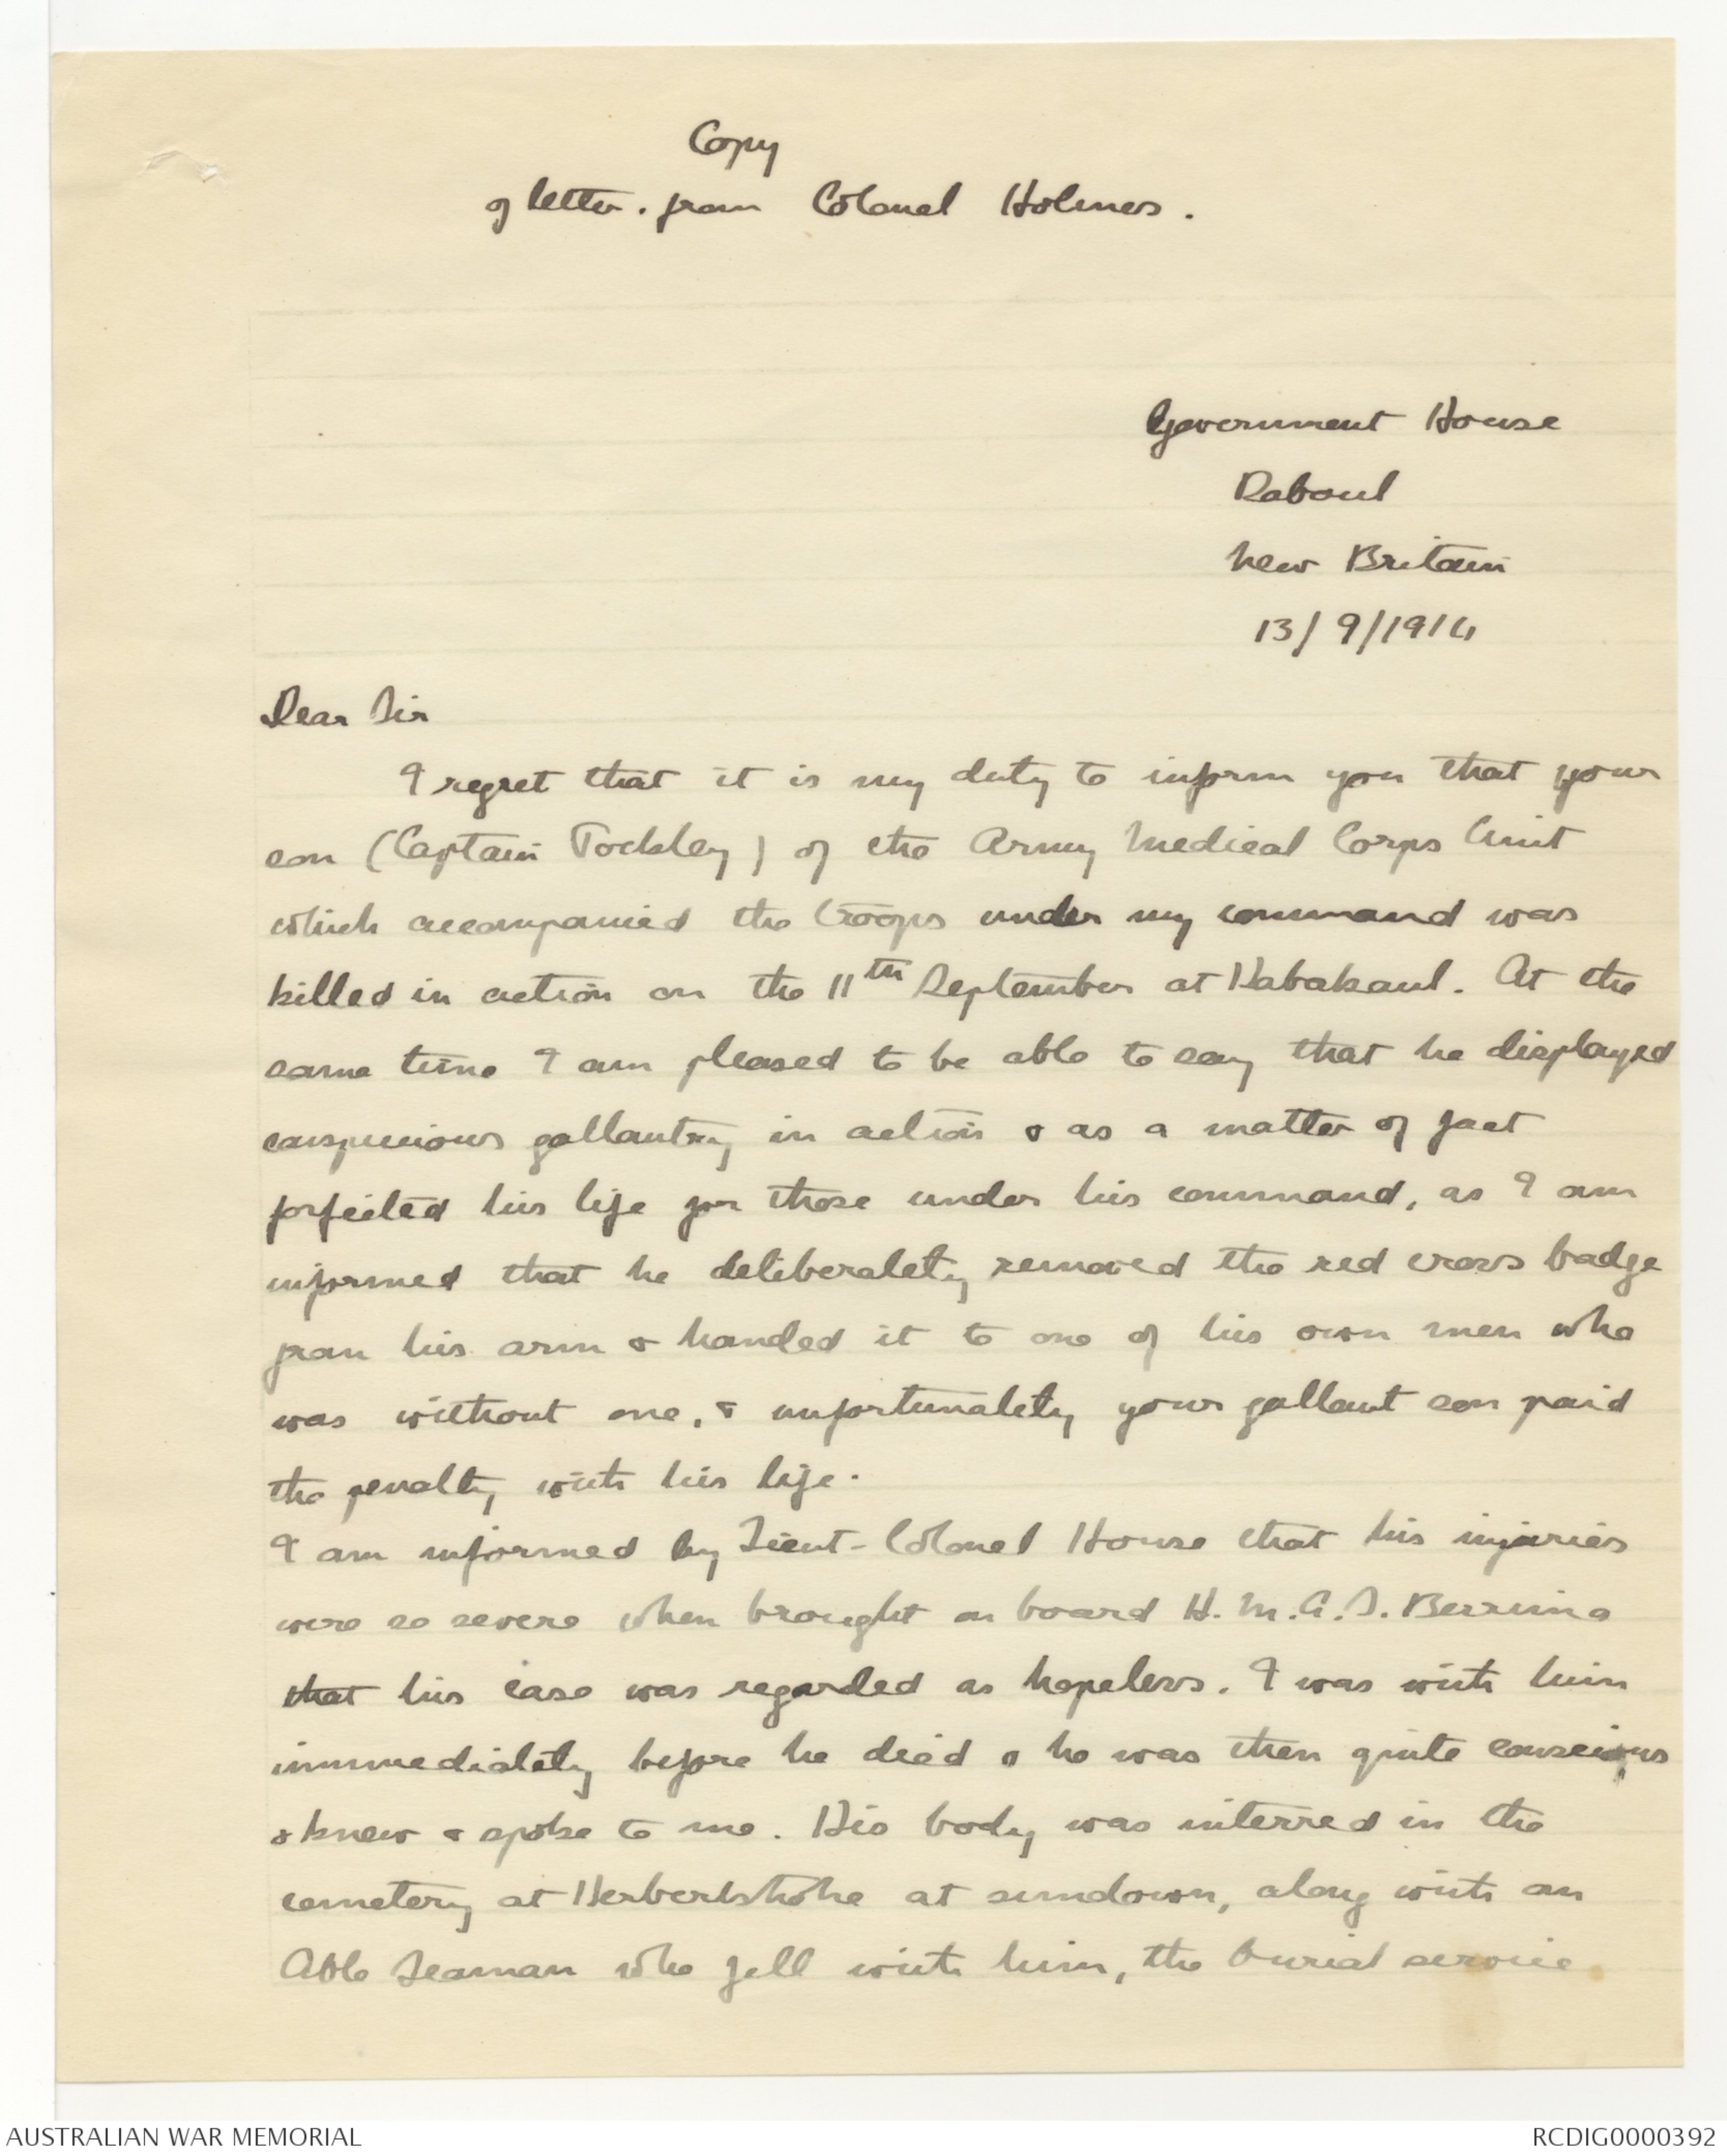 Copy
of letter. from Colonel Holmes.
Government House
Raboul
New Britain
13/9/1914
Dear Sir
I regret that it is my duty to inform you that your
son (Captain Pockley) of the Army Medical Corps Unit
which accompanied the troops under my command was
killed in action on the 11th September at Kabakaul. At the
same time I am pleased to be able to say that he displayed
conspicuous gallantry in action & as a matter of fact
forfeited his life for those under his command, as I am
informed that he deliberately removed the red cross badge
from his arm & handed it to one of his own men who
was without one, & unfortunately your gallant son paid
the penalty with his life.
I am informed by Lieut-Colonel House that his injuries
were so severe when brought on board H.M.A.S. Berrima
that his case was regarded as hopeless. I was with him
immediately before he died & he was then quite conscious
& knew & spoke to me. His body was interred in the
cemetery at Herbertshohe at sundown, along with an
Able Seaman who fell with him, the burial service
AUSTRALIAN WAR MEMORIAL
RCDIG0000392